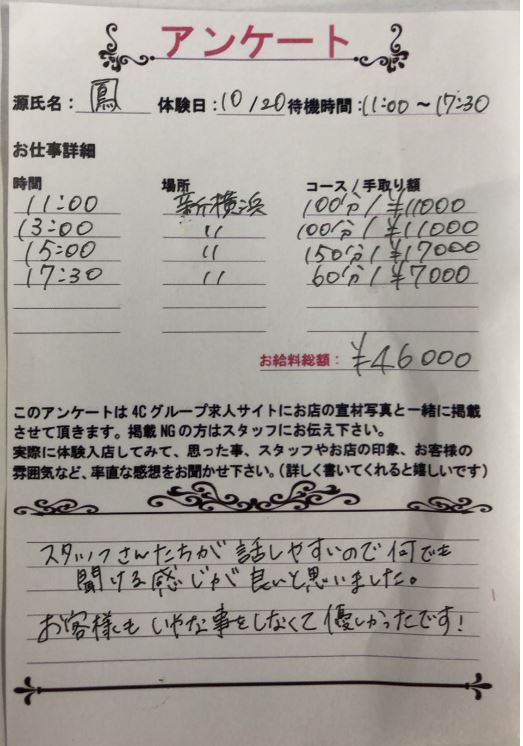 アンケート
源氏名: 鳳 体験日:10/20 待機時間:11:00~17:30
お仕事詳細
時間 場所 コース/手取り額
11:00 新横浜 100分/¥11000
13:00 〃 100分/¥11000
15:00 〃 150分/¥17000
17:30 〃 60分/¥7000
お給料総額: ¥46000
このアンケートは4Cグループ求人サイトにお店の宣材写真と一緒に掲載
させて頂きます。掲載NGの方はスタッフにお伝え下さい。
実際に体験入店してみて、思った事、スタッフやお店の印象、お客様の
雰囲気など、率直な感想をお聞かせ下さい。(詳しく書いてくれると嬉しいです)
スタッフさんたちが話しやすいので何でも
聞ける感じが良いと思いました。
お客様もいやな事をしなくて優しかったです!